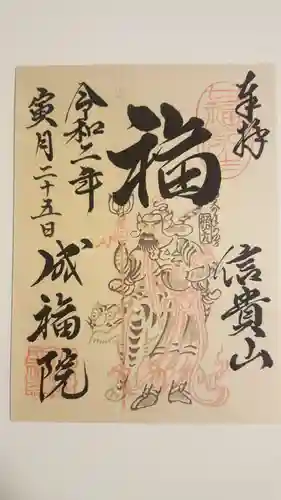 奉拝
信貴山
福
令和二年
寅月二十五日
成福院